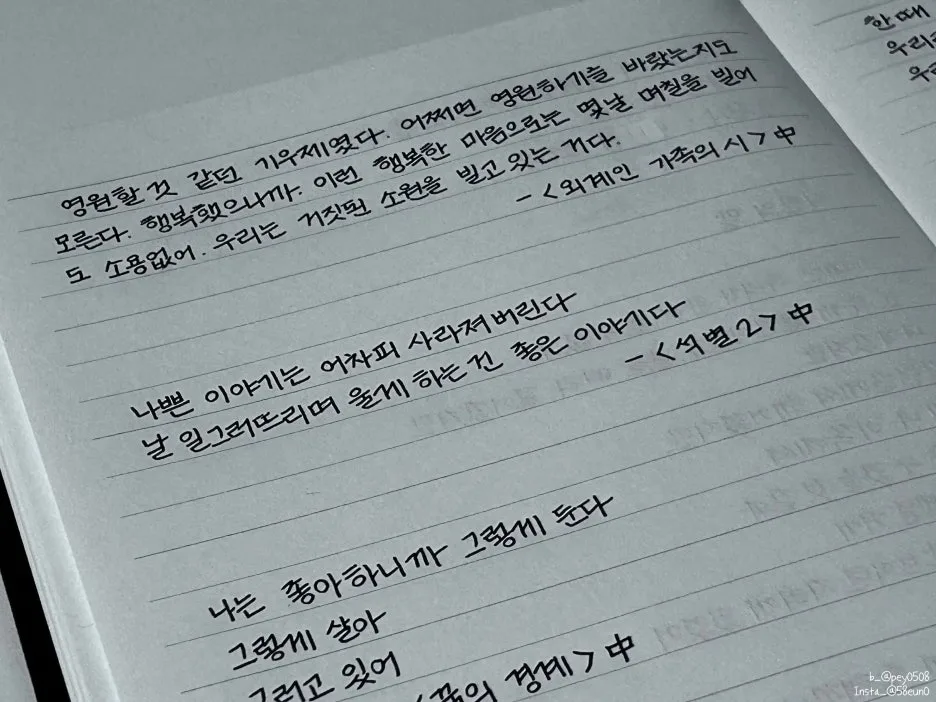 영원할 것 같던 기우제였다. 어쩌면 영원하기를 바랐는지도
모른다. 행복했으니까. 이런 행복한 마음으로는 몇날 며칠을 빌어
도 소용없어. 우리는 거짓된 소원을 빌고 있는 거다.
- <외계인 가족의 시> 中
나쁜 이야기는 어차피 사라져버린다
날 일그러뜨리며 울게 하는 건 좋은 이야기다
- <석별 2> 中
나는 좋아하니까 그렇게 둔다
그렇게 살아
그러고 있어
<꿈의 경계> 中
한때
우리
우
b_@pey0508
Insta_@58eun0